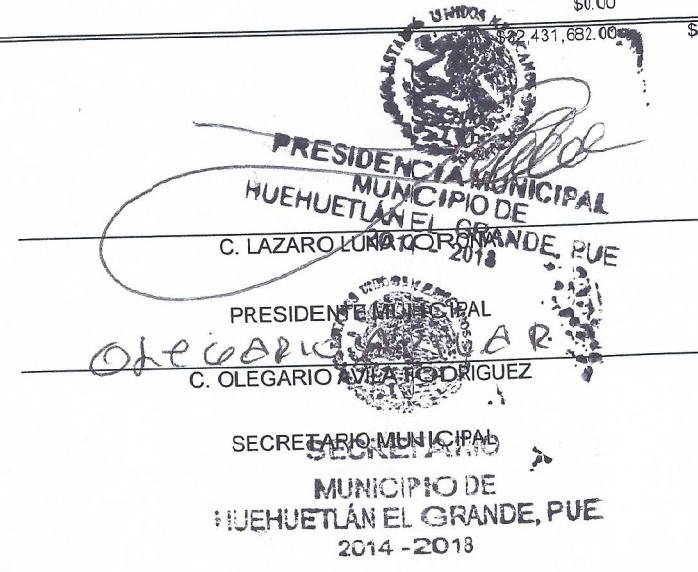 $0.00
$32,431,682.00 $
ESTADOS UNIDOS MEXICANOS
PRESIDENCIA MUNICIPAL
MUNICIPIO DE
HUEHUETLÁN EL GRANDE, PUE
2014 - 2018
C. LAZARO LUNA CORONA
PRESIDENTE MUNICIPAL
OLEGARIO AVILA R
C. OLEGARIO AVILA RODRIGUEZ
SECRETARIO MUNICIPAL
SECRETARIO
MUNICIPIO DE
HUEHUETLÁN EL GRANDE, PUE
2014 - 2018